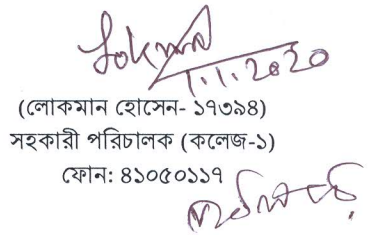 1.1.2020
(লোকমান হোসেন- ১৭৩৯৪)
সহকারী পরিচালক (কলেজ-১)
ফোন: ৪১০৫০১১৭